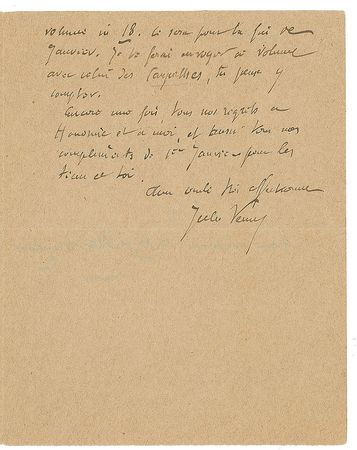 volume in 18. Ce sera pour la fin de
Janvier. Je te ferai envoyer ce volume
avec celui des Carpathes, tu peux y
compter.
Encore une fois, tous nos regrets à
Honorine et à moi, et aussi tous nos
compliments de 1er Janvier pour les
tiens et toi.
Ton vieil
Jules Verne